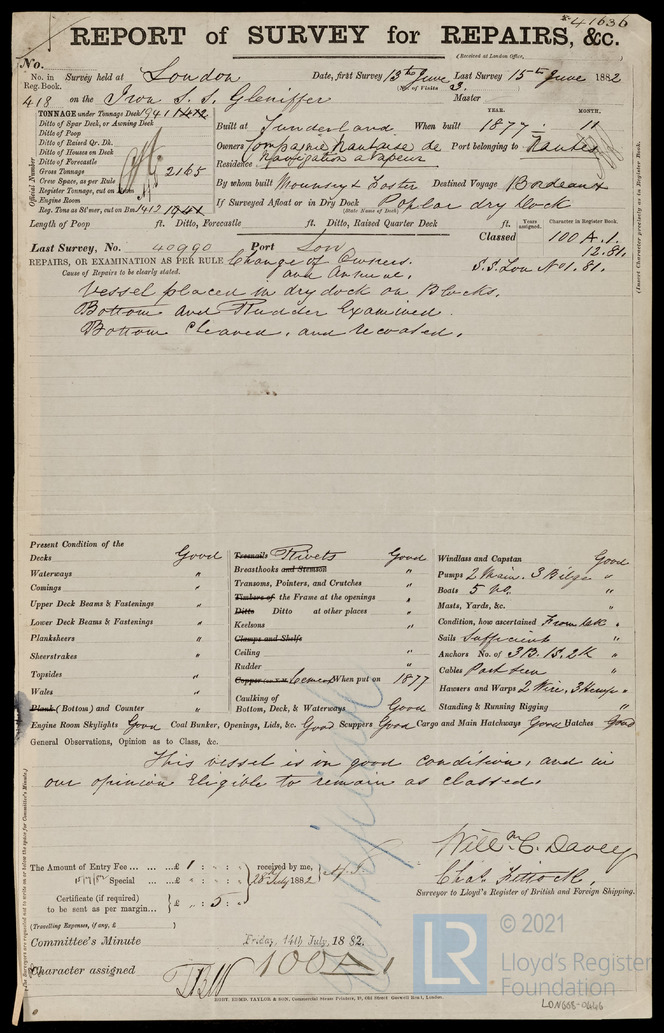 41636
REPORT of SURVEY for REPAIRS, &c.
(Received at London Office,
No.
No. in Reg. Book.
Survey held at London
Date, first Survey 13th June Last Survey 15th June 1882
(No. of Visits 3.
418 on the Iron S. S. Gleniffer
Master
TONNAGE under Tonnage Deck 1941 1412
Ditto of Spar Deck, or Awning Deck
Ditto of Poop
Ditto of Raised Qr. Dk.
Ditto of Houses on Deck
Ditto of Forecastle
Gross Tonnage 2165
Crew Space, as per Rule
Register Tonnage, cut on Beam
Engine Room
Reg. Tons as St'mer, cut on Bm 1412 1941
Official Number
YEAR. MONTH.
Built at Sunderland When built 1877 11
Owners Compagnie Nantaise de Navigation a Vapeur Port belonging to Nantes
Residence
By whom built Mounsey & Foster Destined Voyage Bordeaux
If Surveyed Afloat or in Dry Dock Poplar dry Dock
(State Name of Dock.)
Length of Poop ft. Ditto, Forecastle ft. Ditto, Raised Quarter Deck ft.
Years assigned. Character in Register Book.
Classed 100 A.1.
12.81.
S.S. Lon No 1. 81.
(Insert Character precisely as in Register Book.
Last Survey, No. 40990 Port Lon
REPAIRS, OR EXAMINATION AS PER RULE Change of Owners.
Cause of Repairs to be clearly stated. and Annual.
Vessel placed in dry dock on Blocks.
Bottom and Rudder Examined.
Bottom Cleaned, and recoated.
Present Condition of the
Decks Good
Waterways "
Comings "
Upper Deck Beams & Fastenings "
Lower Deck Beams & Fastenings "
Planksheers "
Sheerstrakes "
Topsides "
Wales "
Plank (Bottom) and Counter "
Treenails Rivets Good
Breasthooks and Stemson "
Transoms, Pointers, and Crutches "
Timbers of the Frame at the openings "
Ditto Ditto at other places "
Keelsons "
Clamps and Shelfs
Ceiling "
Rudder "
Copper (or Y.M. Cement When put on 1877
Caulking of
Bottom, Deck, & Waterways Good
Windlass and Capstan Good
Pumps 2 Main. 3 Bilge "
Boats 5 "
Masts, Yards, &c. "
Condition, how ascertained From dk.
Sails Sufficient "
Anchors No. of 3 B. 1 S. 2 K "
Cables Part seen "
Hawsers and Warps 2 Wire, 3 Hemp "
Standing & Running Rigging "
Engine Room Skylights Good Coal Bunker, Openings, Lids, &c. Good Scuppers Good Cargo and Main Hatchways Good Hatches Good
General Observations, Opinion as to Class, &c.
This vessel is in good condition, and in
our opinion Eligible to remain as classed.
Will. C. Davey
Chas. Fittock.
Surveyor to Lloyd's Register of British and Foreign Shipping.
The Amount of Entry Fee ... ... £ 1 : :
Special ... £ : :
received by me,
28 July 1882
Certificate (if required) to be sent as per margin... £ : 5 :
(Travelling Expenses, if any, £ )
Committee's Minute Friday, 14th July, 1882.
Character assigned 100 A 1
ROBT. EDMD. TAYLOR & SON, Commercial Steam Printers, 19, Old Street Goswell Road, London.
© 2021
LR
Lloyd's Register
Foundation
LON668-0446